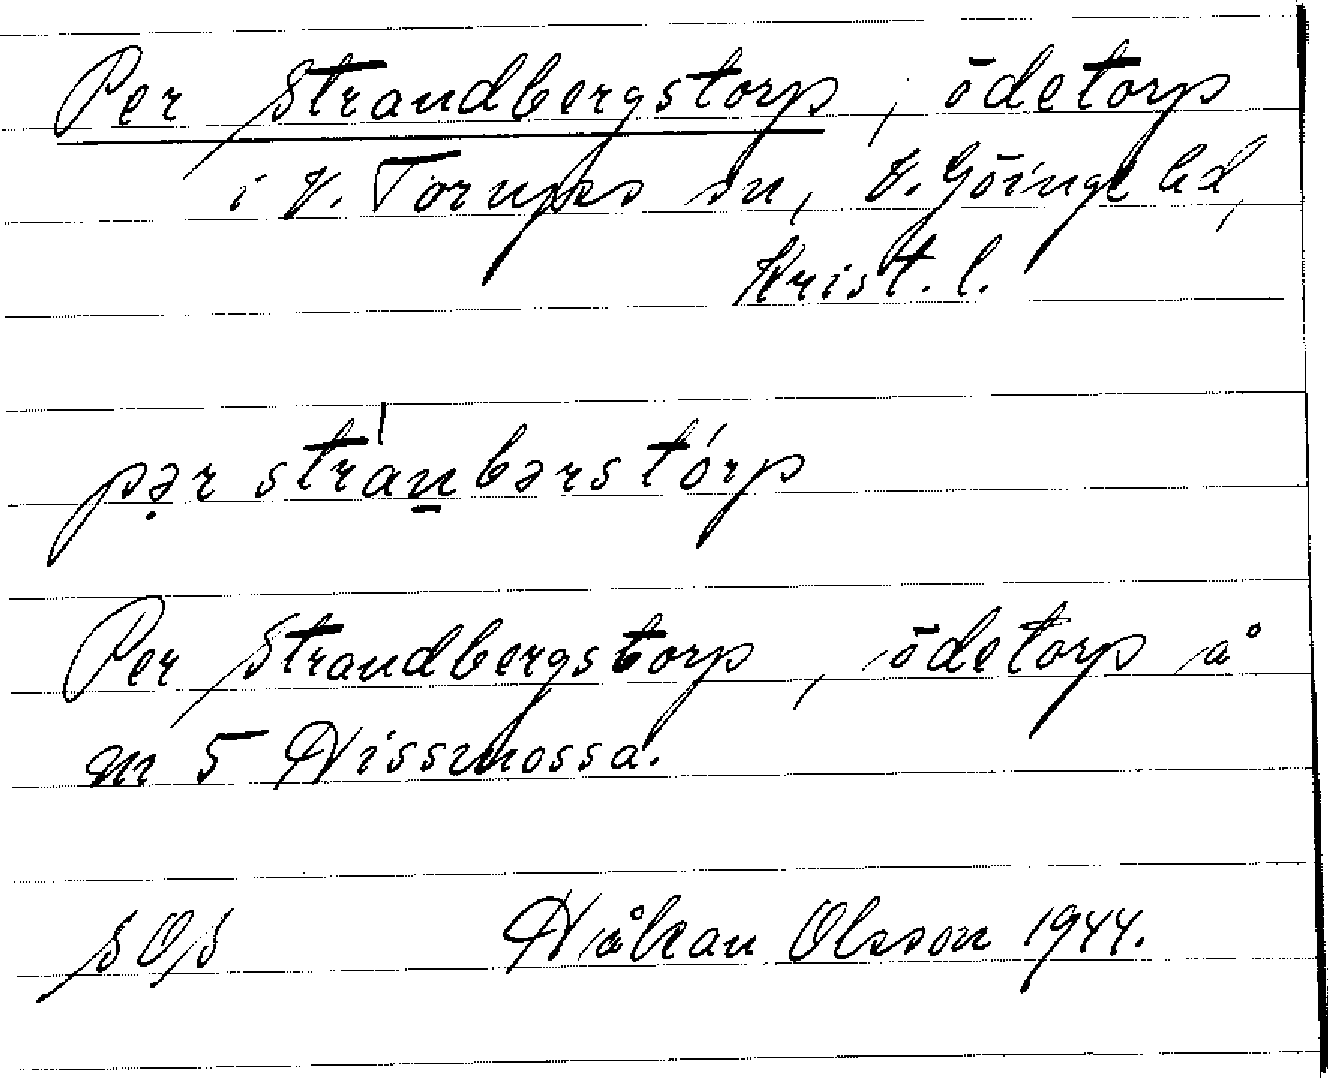 Per Strandbergstorp, ödetorp
i V. Torups sn, V. Göinge hd,
Krist. l.
pə̣r stra̍n̠bərstórp
Per Strandbergstorp, ödetorp å
nr 5 Hissmossa.
SOS Håkan Olsson 1944.